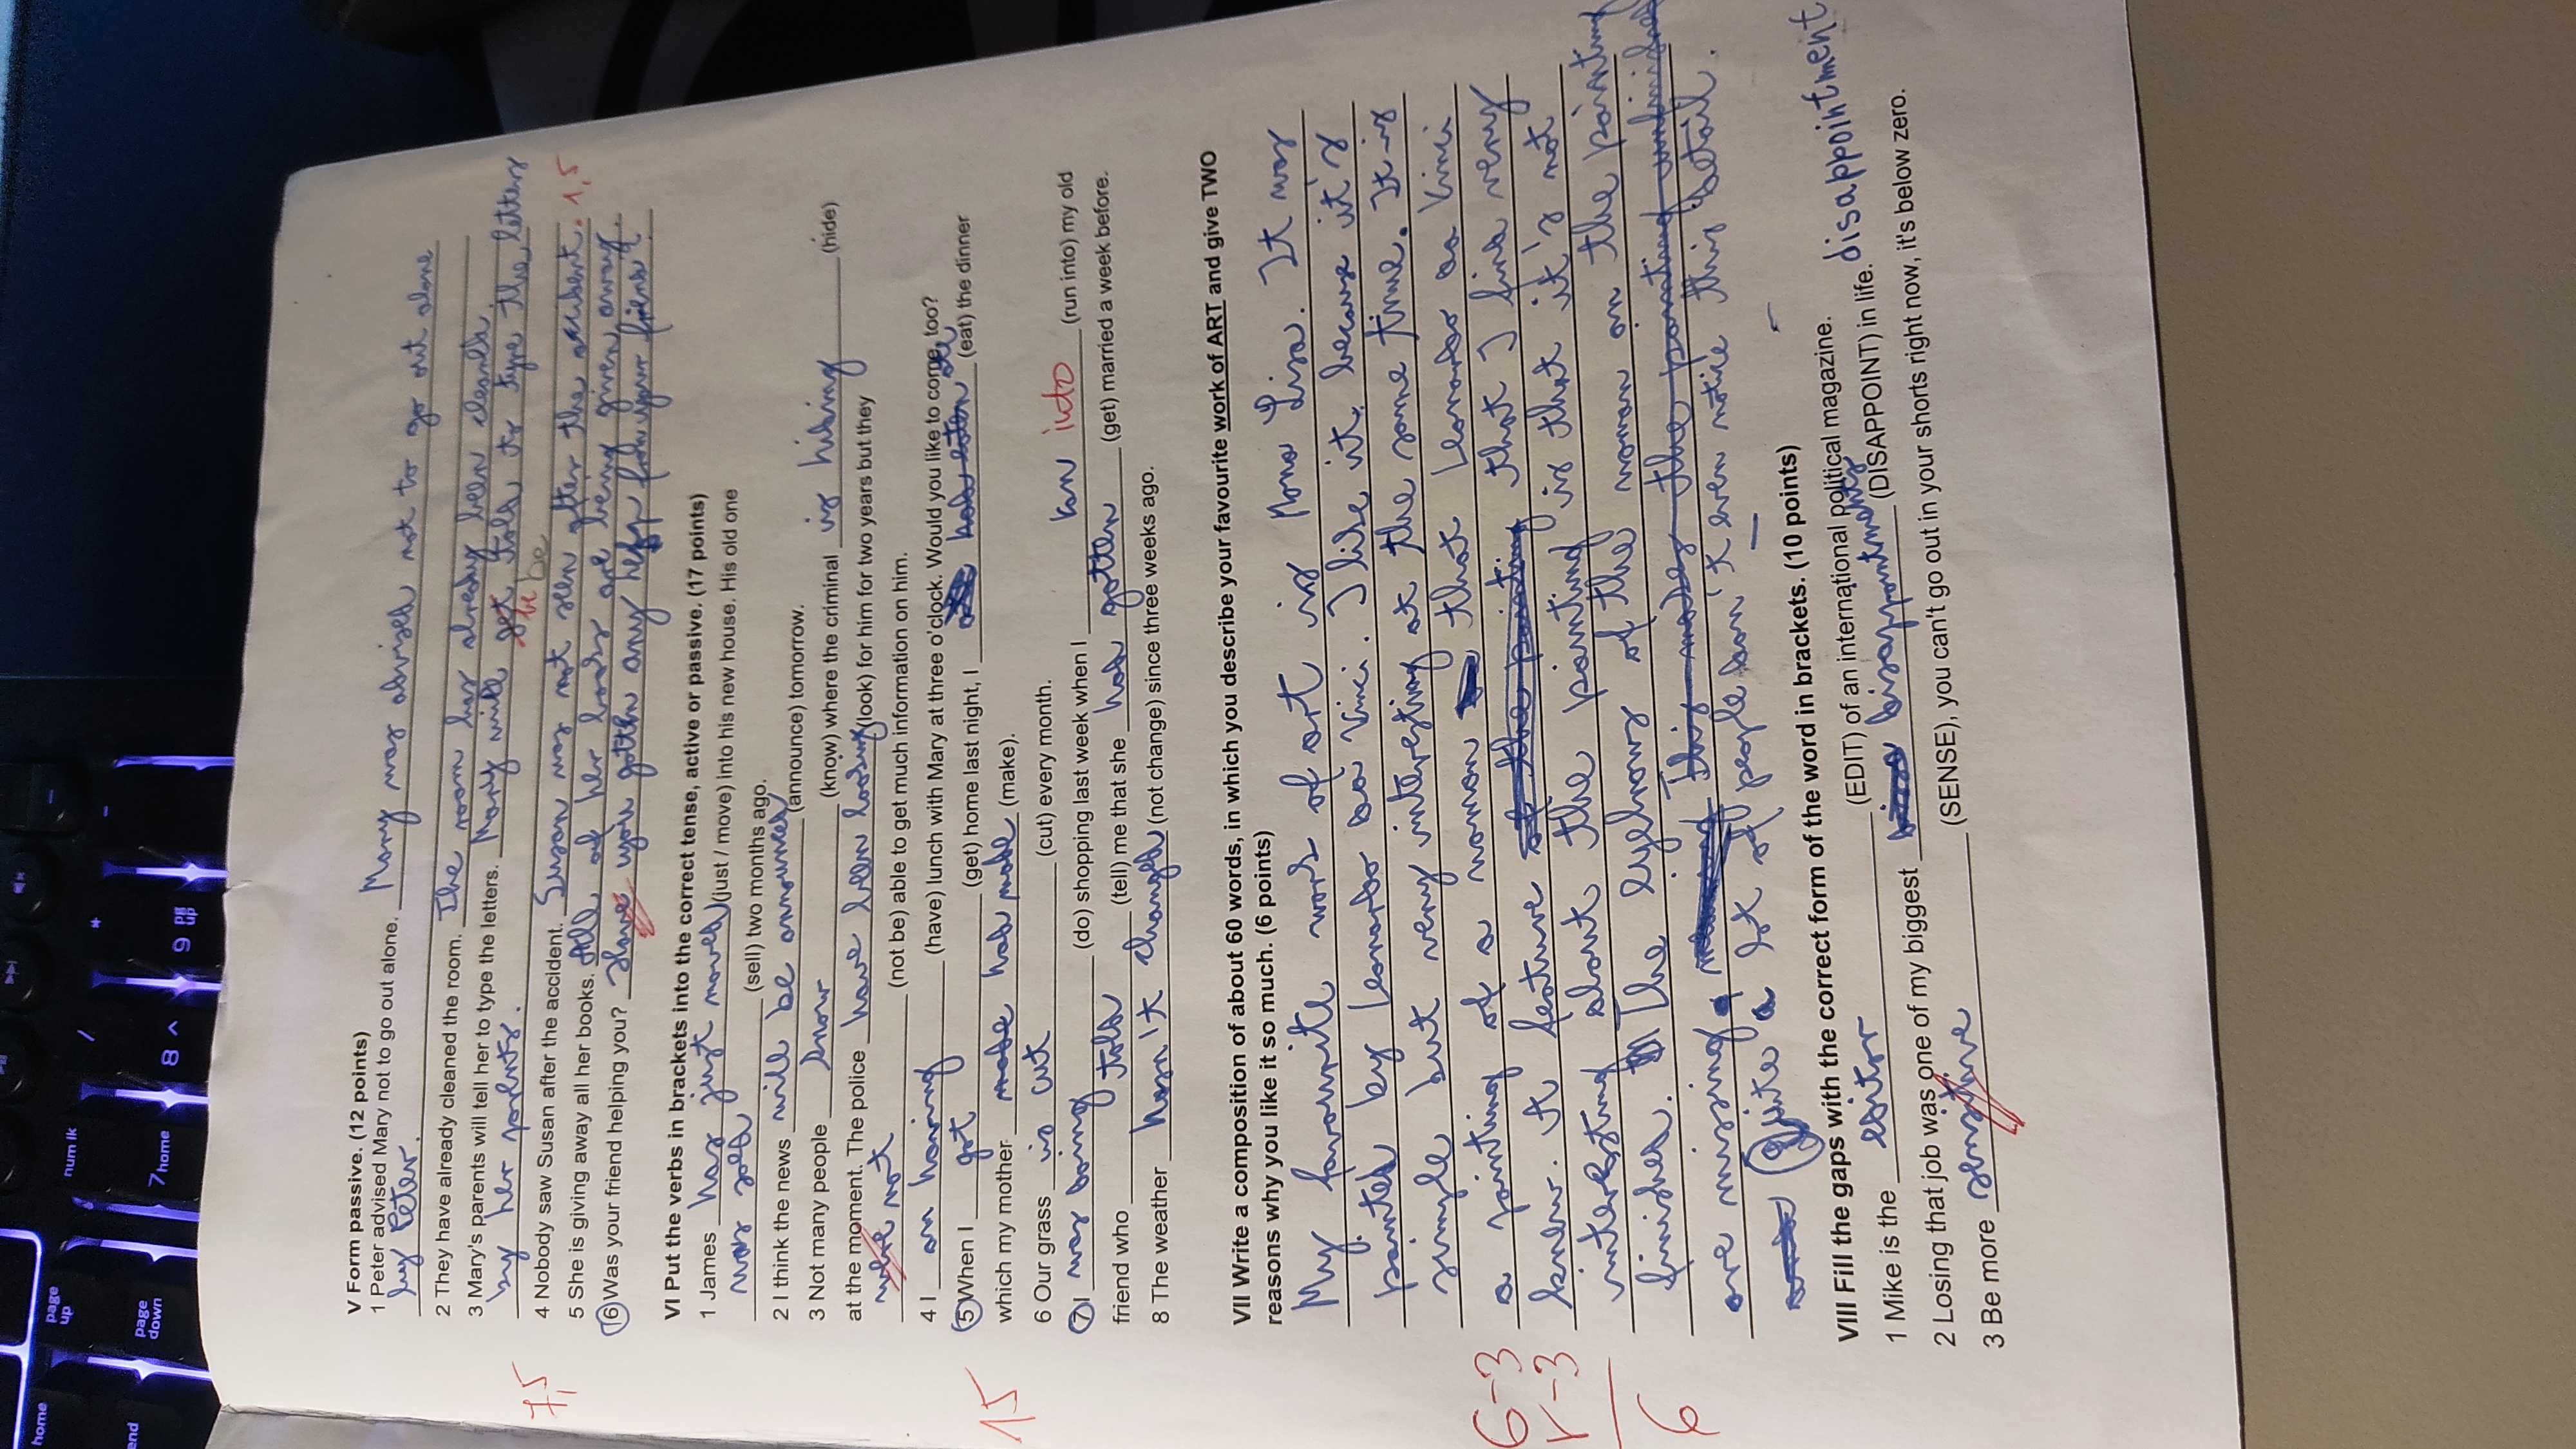 home
page up
num lk
/
*
-
end
page down
7 home
8 ^
9 pg up
V Form passive. (12 points)
1 Peter advised Mary not to go out alone. Mary was advised not to go out alone
by Peter.
2 They have already cleaned the room. The room has already been cleaned.
3 Mary's parents will tell her to type the letters. Mary will get told to type the letters
by her parents. be be
7,5
4 Nobody saw Susan after the accident. Susan was not seen after the accident. 1,5
5 She is giving away all her books. All of her books are being given away.
6 Was your friend helping you? Have you gotten any help from your friend?
VI Put the verbs in brackets into the correct tense, active or passive. (17 points)
1 James has just moved (just / move) into his new house. His old one
was sold (sell) two months ago.
2 I think the news will be announced (announce) tomorrow.
3 Not many people know (know) where the criminal is hiding (hide)
at the moment. The police have been looking (look) for him for two years but they
were not (not be) able to get much information on him.
4 I am having (have) lunch with Mary at three o'clock. Would you like to come, too?
5 When I got (get) home last night, I had eaten ate (eat) the dinner
15
which my mother made had made (make).
6 Our grass is cut (cut) every month.
7 I was doing (do) shopping last week when I ran into (run into) my old
friend who told (tell) me that she had gotten (get) married a week before.
8 The weather hasn't changed (not change) since three weeks ago.
VII Write a composition of about 60 words, in which you describe your favourite work of ART and give TWO
reasons why you like it so much. (6 points)
My favourite work of art is Mona Lisa. It was
painted by Leonardo da Vinci. I like it because it's
simple but very interesting at the same time. It is
6-3 a painting of a woman that Leonardo da Vinci
knew. A feature of the painting that I find very
r-3
interesting about the painting is that it's not
finished. The eyebrows of the woman on the painting
6
are missing. This makes the painting unfinished
and Quite a lot of people don't even notice this detail.
VIII Fill the gaps with the correct form of the word in brackets. (10 points)
1 Mike is the editor (EDIT) of an international political magazine.
2 Losing that job was one of my biggest disappointments (DISAPPOINT) in life. disappointment
3 Be more sensitive (SENSE), you can't go out in your shorts right now, it's below zero.